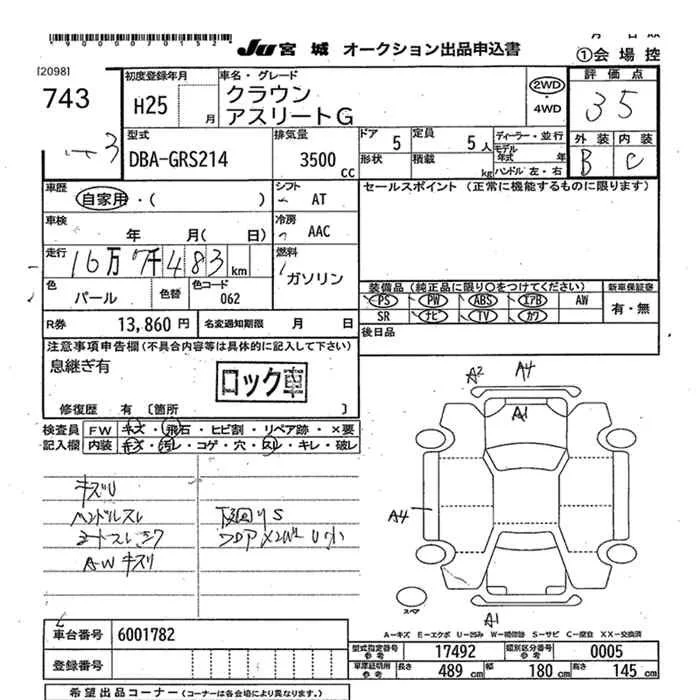 90000070152
JU 宮城 オークション出品申込書
①会場控
[2098]
743
初度登録年月
H25 月
車名・グレード
クラウン
アスリートG
2WD
4WD
評価点
35
型式
DBA-GRS214
排気量
3500 CC
ドア 5
定員 5人
形状
積載 kg
ディーラー・並行
モデル年式 年
ハンドル左・右
外装 内装
B C
車歴
自家用・( )
シフト
AT
セールスポイント (正常に機能するものに限ります)
車検
年 月( 日)
冷房
AAC
走行
16万7千483km
燃料
ガソリン
色
パール
色替
色コード
062
装備品(純正品に限り○をつけてください)
新車保証書
PS PW ABS エアB AW
SR ナビ TV カワ
有・無
R券 13,860円
名変通知期限 月 日
後日品
注意事項申告欄(不具合内容等は具体的に記入して下さい)
息継ぎ有
ロック車
修復歴 有 〔箇所 〕
検査員記入欄
FW キズ・飛石・ヒビ割・リペア跡・×要
内装 キズ・汚れ・コゲ・穴・スレ・キレ・破レ
キズU
ハンドルスレ
AWキズリ
下回りS
A2 A4
A1
A4
スペア
A1
A-キズ E-エクボ U-凹み W-補修跡 S-サビ C-腐食 XX-交換済
車台番号 6001782
登録番号
型式指定番号 参考 17492
類別区分番号 参考 0005
車庫証明用 参考
長さ 489cm
幅 180cm
高さ 145cm
希望出品コーナー(コーナーは各会場により異なります。)